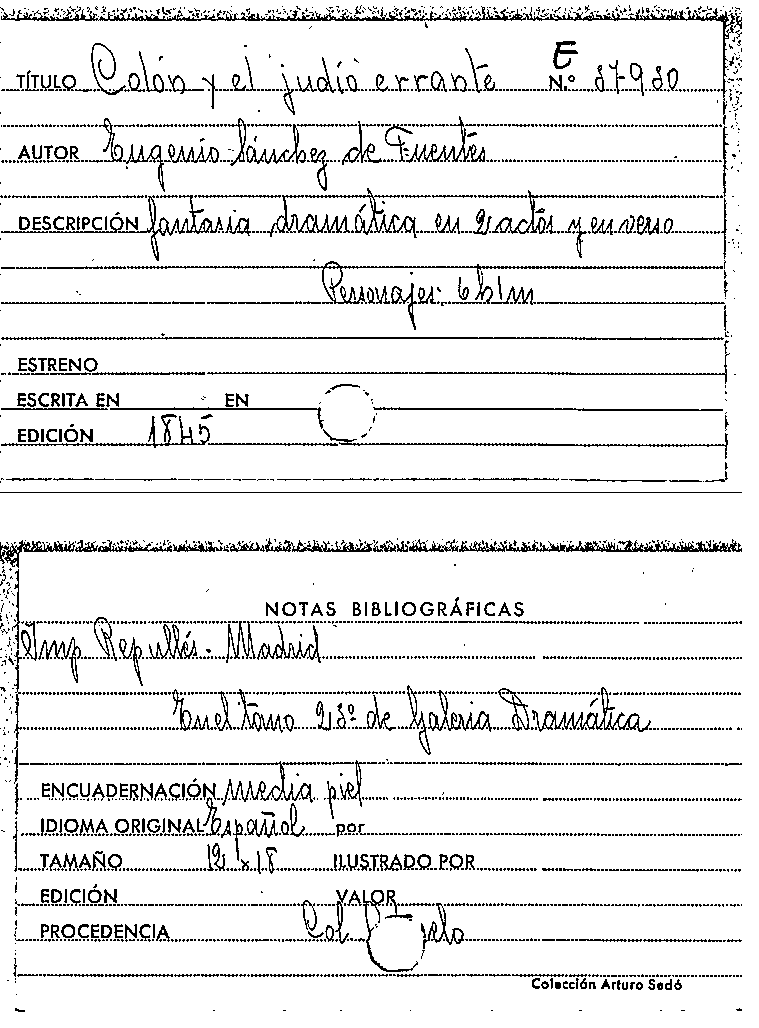 E
TÍTULO Colón y el judío errante N.º 37930
AUTOR Eugenio Sánchez de Fuentes
DESCRIPCIÓN fantasia dramática en 2 actos y en verso
Personajes: 6 h 1 m
ESTRENO
ESCRITA EN EN
EDICIÓN 1845
NOTAS BIBLIOGRÁFICAS
Imp Repullés - Madrid
En el tomo 23º de Galeria Dramática
ENCUADERNACIÓN media piel
IDIOMA ORIGINAL Español por
TAMAÑO 12 x 18 ILUSTRADO POR
EDICIÓN VALOR
PROCEDENCIA Col.
Colección Arturo Sedó